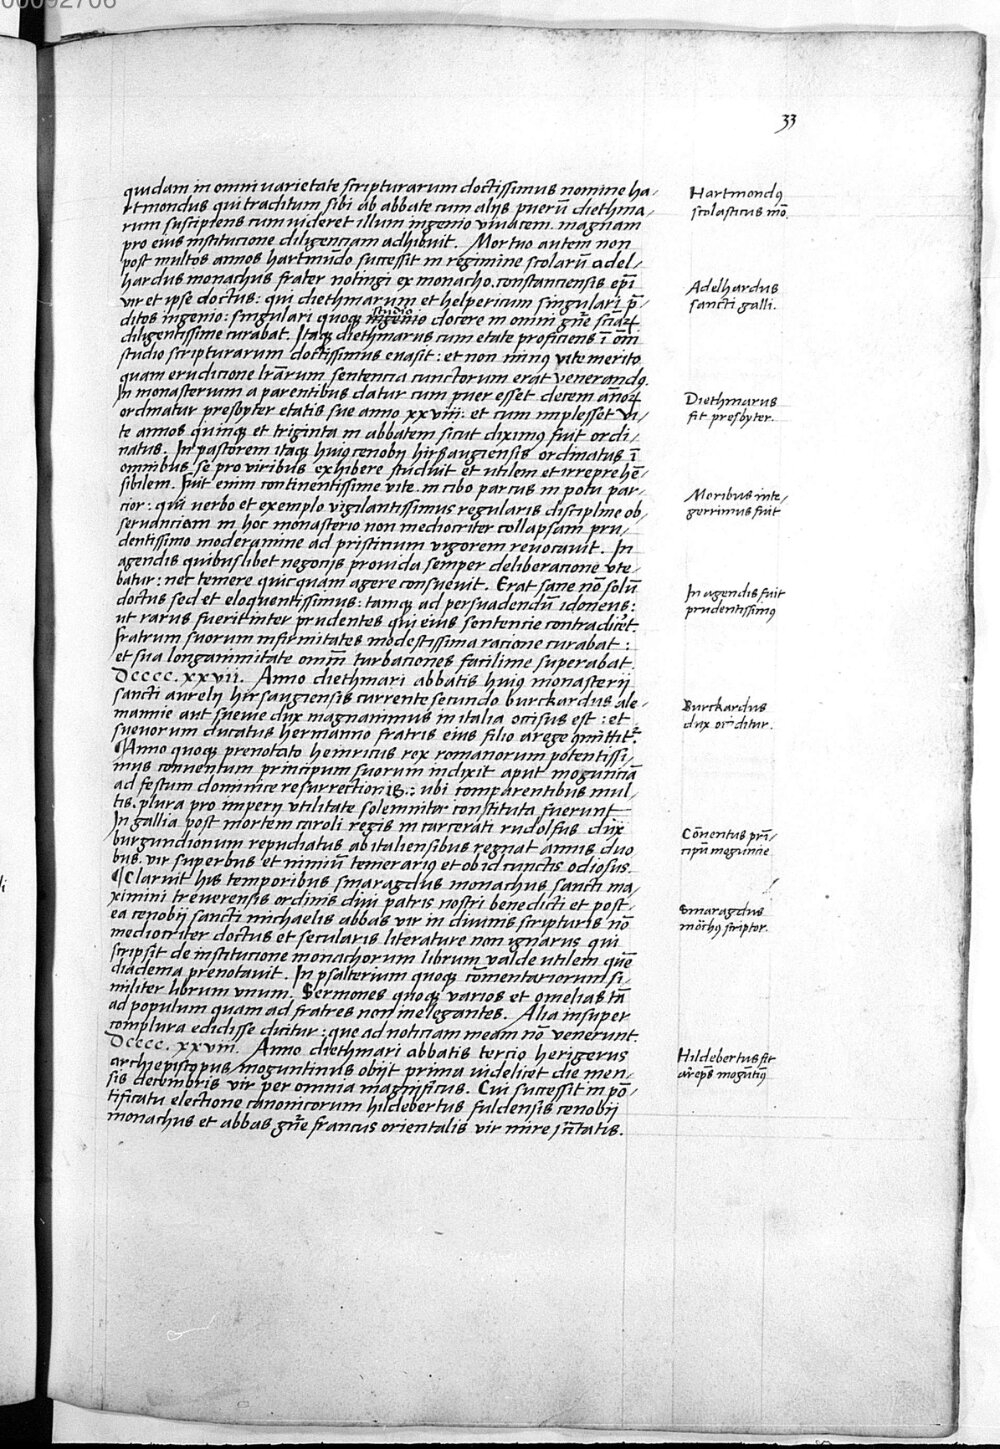 33
quidam in omni uarietate scripturarum doctissimus nomine ha/
rtmondus qui traditum sibi ab abbate cum alijs puerū diethma/
rum suscipiens cum uideret illum ingenio viuacem. magnam
pro eius institucione diligenciam adhibuit. Mortuo autem non
post multos annos hartmūdo successit in regimine scolarū adel/
hardus monachus frater notingi ex monacho constanciensis ep̄i
vir et ipse doctus: qui diethmarum et helpericum singulari p̄/
ditos ingenio: singulari quoqꝫ ingenio studio docere in omni gn̄e sciaꝝ
diligentissime curabat. Itaqꝫ diethmarus cum etate proficiens ī om̄
studio scripturarum doctissimus euasit: et non minꝰ vite merito
quam erudicione lr̄arum sentencia cunctorum erat venerandꝰ.
In monasterium a parentibus datur cum puer esset decem annoꝝ
ordinatur presbyter etatis sue anno xxviii: et cum implesset vi/
te annos quinqꝫ et triginta in abbatem sicut diximꝰ fuit ordi/
natus. In pastorem itaqꝫ huiꝰ cenobij hirsaugiensis ordinatus ī
omnibus se pro viribus exhibere studuit et utilem et irreprehē/
sibilem. Fuit enim continentissime vite. in cibo parcus in potu par/
cior: qui verbo et exemplo vigilantissimus regularis discipline ob/
seruanciam in hoc monasterio non mediocriter collapsam pru/
dentissimo moderamine ad pristinum vigorem reuocauit. In
agendis quibuslibet negocijs prouida semper deliberacione vte/
batur: nec temere quicquam agere consueuit. Erat sane nō solū
doctus sed et eloquentissimus: tamqꝫ ad persuadendū idoneus:
ut rarus fuerit inter prudentes qui eius sentencie contradicēt.
fratrum suorum infirmitates modestissima racione curabat:
et sua longanimitate omm̄ turbaciones facilime superabat.
Dcccc.xxvii. Anno diethmari abbatis huiꝰ monasterij
sancti aurelij hirsaugiensis currente secundo burckardus ale/
mannie aut sueuie dux magnanimus in italia occisus est: et
sueuorum ducatus hermanno fratris eius filio a rege 9mittit᷑.
¶Anno quoqꝫ prenotato heinricus rex romanorum potentissi/
mus conuentum principum suorum indixit aput mogunciā
ad festum dominice resurrectionis: ubi comparentibus mul/
tis plura pro imperij vtilitate solemniter constituta fuerunt
In gallia post mortem caroli regis incarcerati rudolfus dux
burgundionum repudiatus ab italiensibus regnat annis duo
bus. vir superbus et nimiū temerariꝰ et ob id cunctis odiosus.
¶Claruit his temporibus smaragdus monachus sancti ma/
ximini treuerensis ordinis diui patris nostri benedicti et post/
ea cenobij sancti michaelis abbas vir in diuinis scripturis nō
mediocriter doctus et secularis literature non ignarus qui
scripsit de institucione monachorum librum valde utilem quē
diadema prenotauit. In psalterium quoqꝫ cōmentariorum si/
militer librum vnum. Sermones quoqꝫ varios et omelias tā
ad populum quam ad fratres non inelegantes. Alia insuper
complura edidisse dicitur: que ad noticiam meam nō venerunt.
Dcccc.xxviii. Anno diethmari abbatis tercio herigerus
archiepiscopus moguntinus obijt prima videlicet die men/
sis decembris vir per omnia magnificus. Cui successit in pō/
tificatu electione canonicorum hildebertus fuldensis cenobij
monachus et abbas gn̄e francus orientalis vir mire sc̄titatis.
Hartmondꝰ
scolasticus mō.
Adelhardus
sancti galli.
Diethmarus
fit presbyter.
Moribus inte/
gerrimus fuit
In agendis fuit
prudentissimꝰ
Burckardus
dux occiditur.
Cōuentus prī/
cipū moguncie
Smaragdus
mōchꝰ scriptor.
Hildebertus fit
arēp̄s mogūtinꝰ